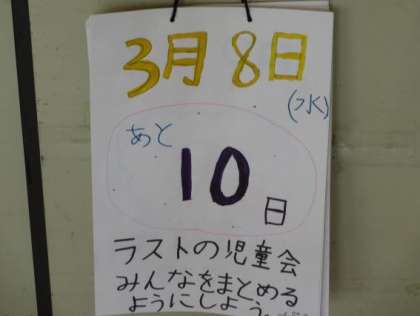 3月8日
(水)
あと
10
日
ラストの児童会
みんなをまとめる
ようにしよう。